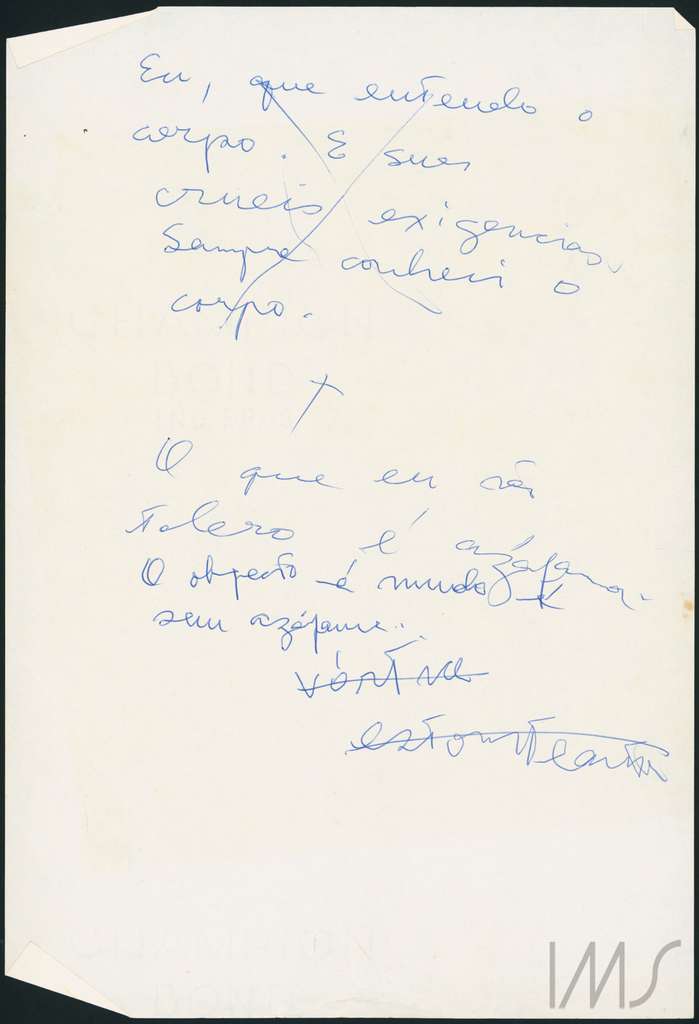 Eu, que entendo o
corpo. E suas
cruéis exigências.
Sempre conheci o
corpo.
O que eu não
tolero é azáfama.
O objecto é mudo é
sem azáfama.
vórtice
estonteante
IMS